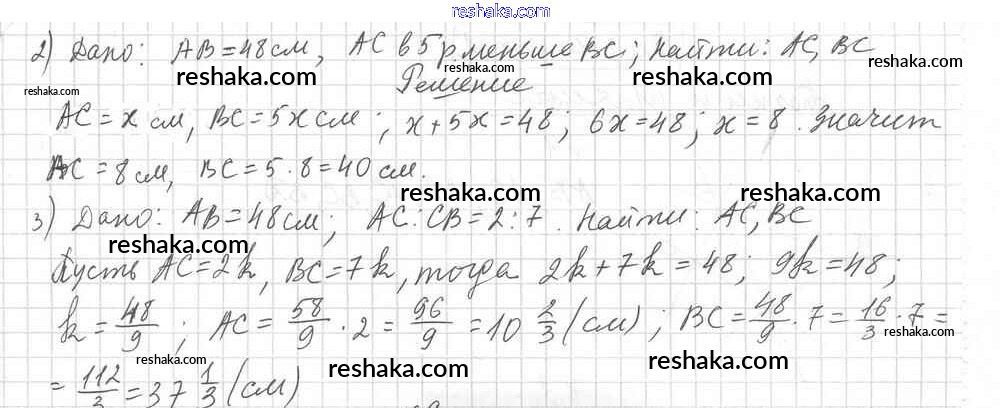 reshaka.com
2) Дано: AB=48см, AC в 5 р меньше BC; Найти: AC, BC
reshaka.com reshaka.com reshaka.com reshaka.com
Решение
AC=x см, BC=5x см; x+5x=48; 6x=48; x=8. Значит
AC=8см, BC=5·8=40 см.
reshaka.com reshaka.com
3) Дано: AB=48см; AC:CB=2:7. Найти: AC, BC
reshaka.com reshaka.com
Пусть AC=2k, BC=7k, тогда 2k+7k=48; 9k=48;
k=48/9; AC=58/9·2=96/9=10 2/3 (см); BC=48/9·7=16/3·7=
reshaka.com reshaka.com reshaka.com reshaka.com
=112/3=37 1/3 (см)